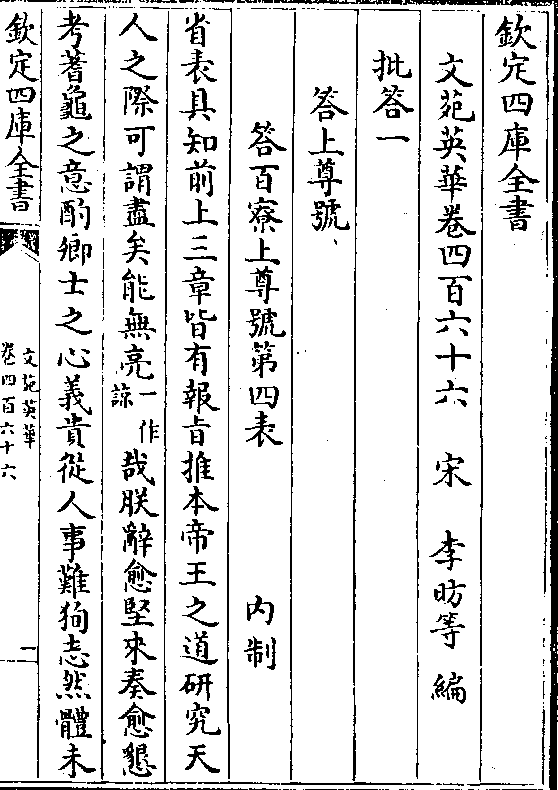 欽定四庫全書
文苑英華卷四百六十六　宋　李昉等　編
批答一
答上尊號
答百寮上尊號第四表　内制
省表具知前上三章皆有報旨推本帝王之道研究天
人之際可謂盡矣能無亮一作諒哉朕辭愈堅來奏愈懇
考蓍龜之意酌卿士之心義貴從人事難狥志然體未
欽定四庫全書
文苑英華
卷四百六十六
一